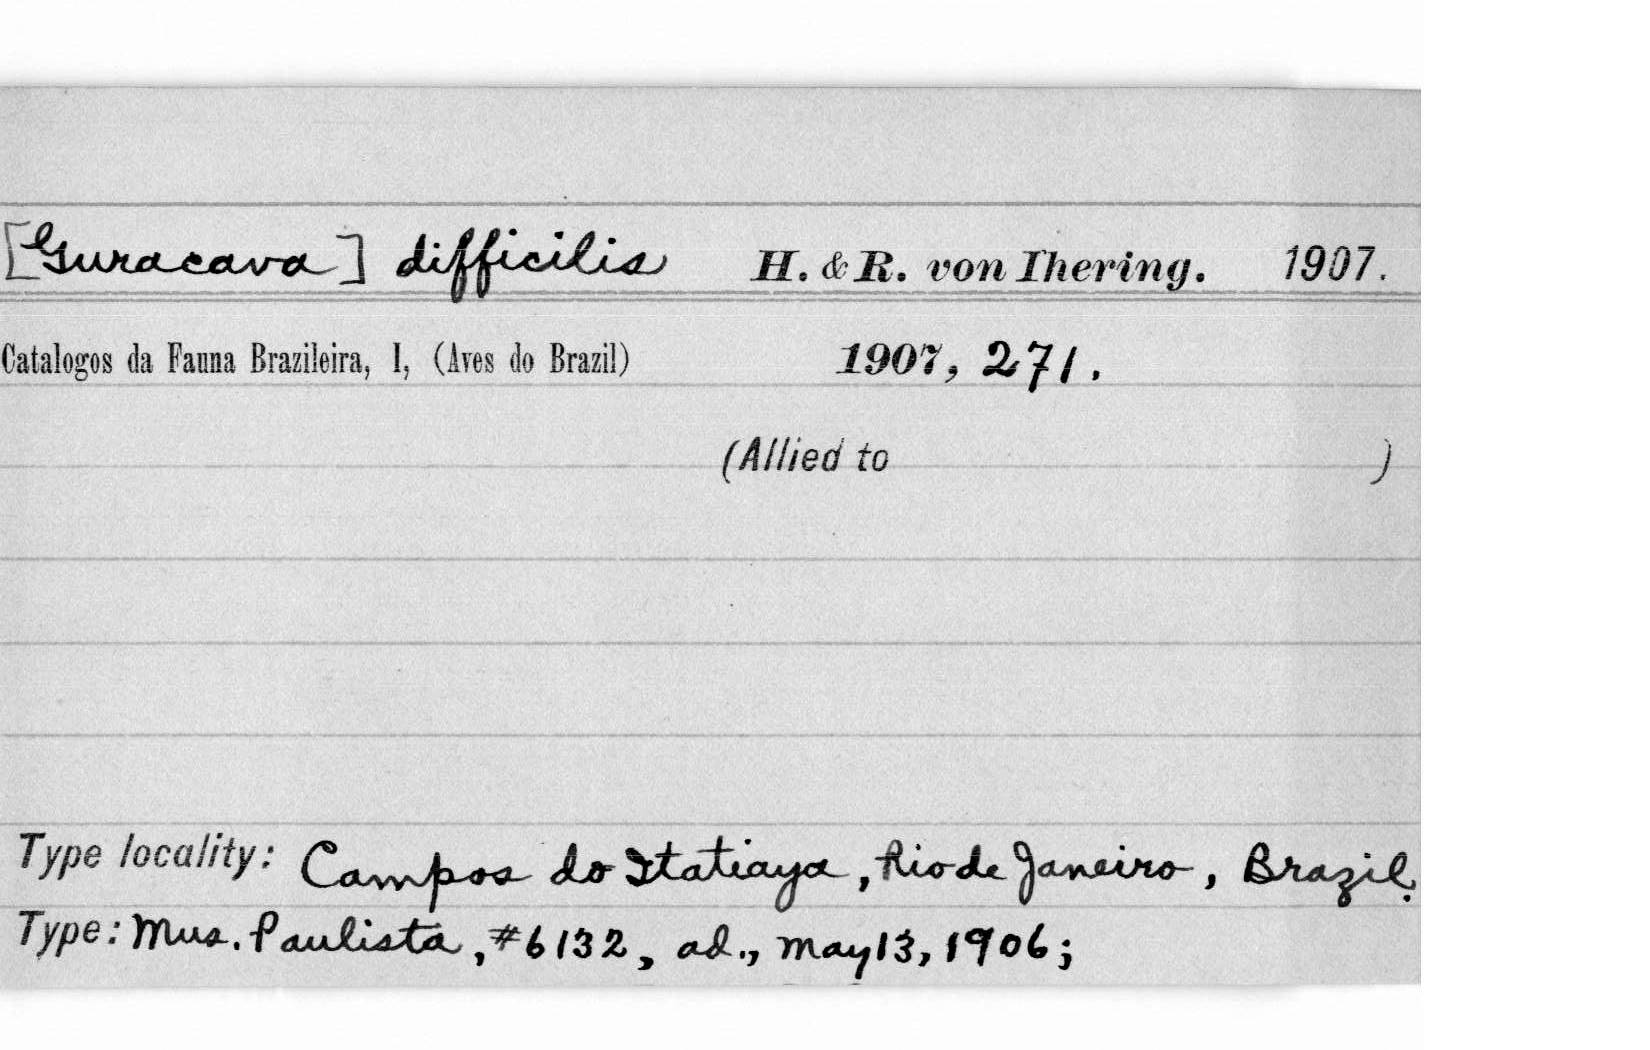 [Guracava] difficilis H. & R. von Ihering. 1907.
Catalogos da Fauna Brazileira, I, (Aves do Brazil) 1907, 271.
(Allied to )
Type locality: Campos do Itatiaya, Rio de Janeiro, Brazil.
Type: Mus. Paulista, #6132, ad., May 13, 1906;